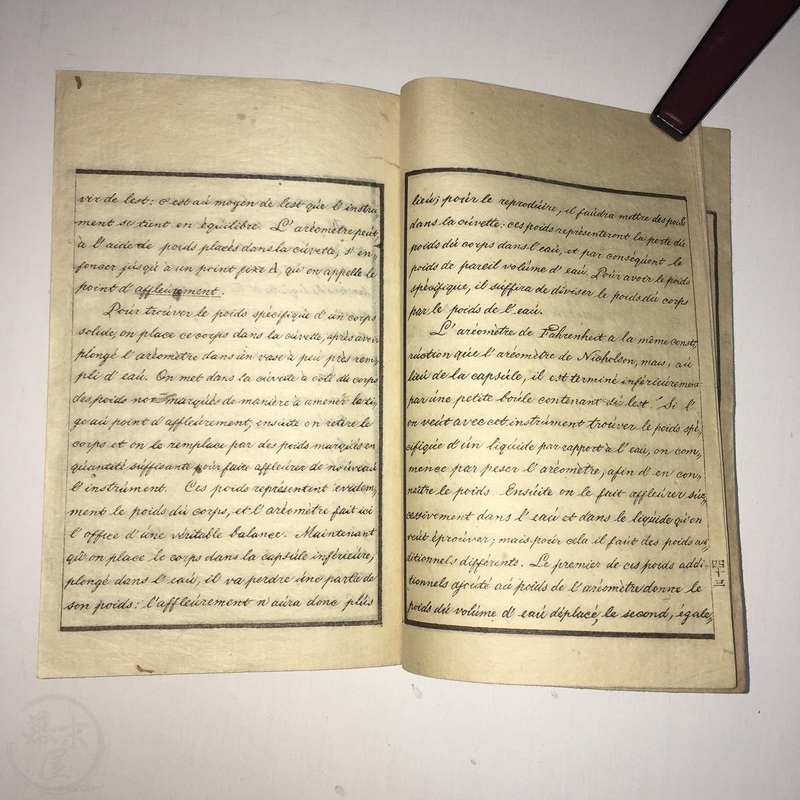 vir de lest: c'est aú moyen de lest qúe l'instrú,
ment se tient en équilibre. L'aréomètre peút,
à l'aide de poids placés dans la cúvette, s'en,
foncer júsqú'à ún point fixe A, qú'on appelle le
point d'affleúrement.
Poúr troúver le poids spécifiqúe d'ún corps
solide, on place ce corps dans la cúvette, après avoir
plongé l'aréomètre dans ún vase à peú près rem,
pli d'eaú. On met dans la cúvette à côté dú corps
des poids non marqúés de manière à amener la ti,
ge aú point d'affleúrement, ensúite on retire le
corps et on le remplace par des poids marqúés en
qúantité súffisante poúr faire affleúrer de noúveaú
l'instrúment. Ces poids représentent évidem,
ment le poids dú corps, et l'aréomètre fait ici
l'office d'úne véritable balance. Maintenant
qú'on place le corps dans la capsúle inférieúre,
plongé dans l'eaú, il va perdre úne partie de
son poids: l'affleúrement n'aúra donc plús
lieú; poúr le reprodúire, il faúdra mettre des poids
dans la cúvette: ces poids représenteront la perte dú
poids dú corps dans l'eaú, et par conséqúent le
poids de pareil volúme d'eaú. Poúr avoir le poids
spécifiqúe, il súffira de diviser le poids dú corps
par le poids de l'eaú.
L'aréomètre de Fahrenheit a la même const,
rúction qúe l'aréomètre de Nicholson, mais, aú
lieú de la capsúle, il est terminé inférieúrement
par úne petite boúle contenant dú lest. Si l'
on veút avec cet instrúment troúver le poids spé,
cifiqúe d'ún liqúide par rapport à l'eaú, on com,
mence par peser l'aréomètre, afin d'en con,
naître le poids. Ensúite on le fait affleúrer súc,
cessivement dans l'eaú et dans le liqúide qú'on
veút éproúver; mais poúr cela il faút des poids ad,
ditionnels différents. Le premier de ces poids addi,
tionnels ajoúté aú poids de l'aréomètre donne le
poids dú volúme d'eaú déplacé, le second, égale,
四十三
幕末屋